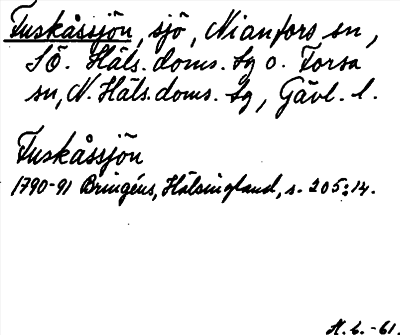 Fuskåssjön, sjö, Nianfors sn,
SÖ. Häls. doms. lg o. Forsa
sn, N. Häls. doms. lg, Gävl. l.
Fuskåssjön
1790-91 Bringéus, Hälsingland, s. 205:14.
H. L. -61.